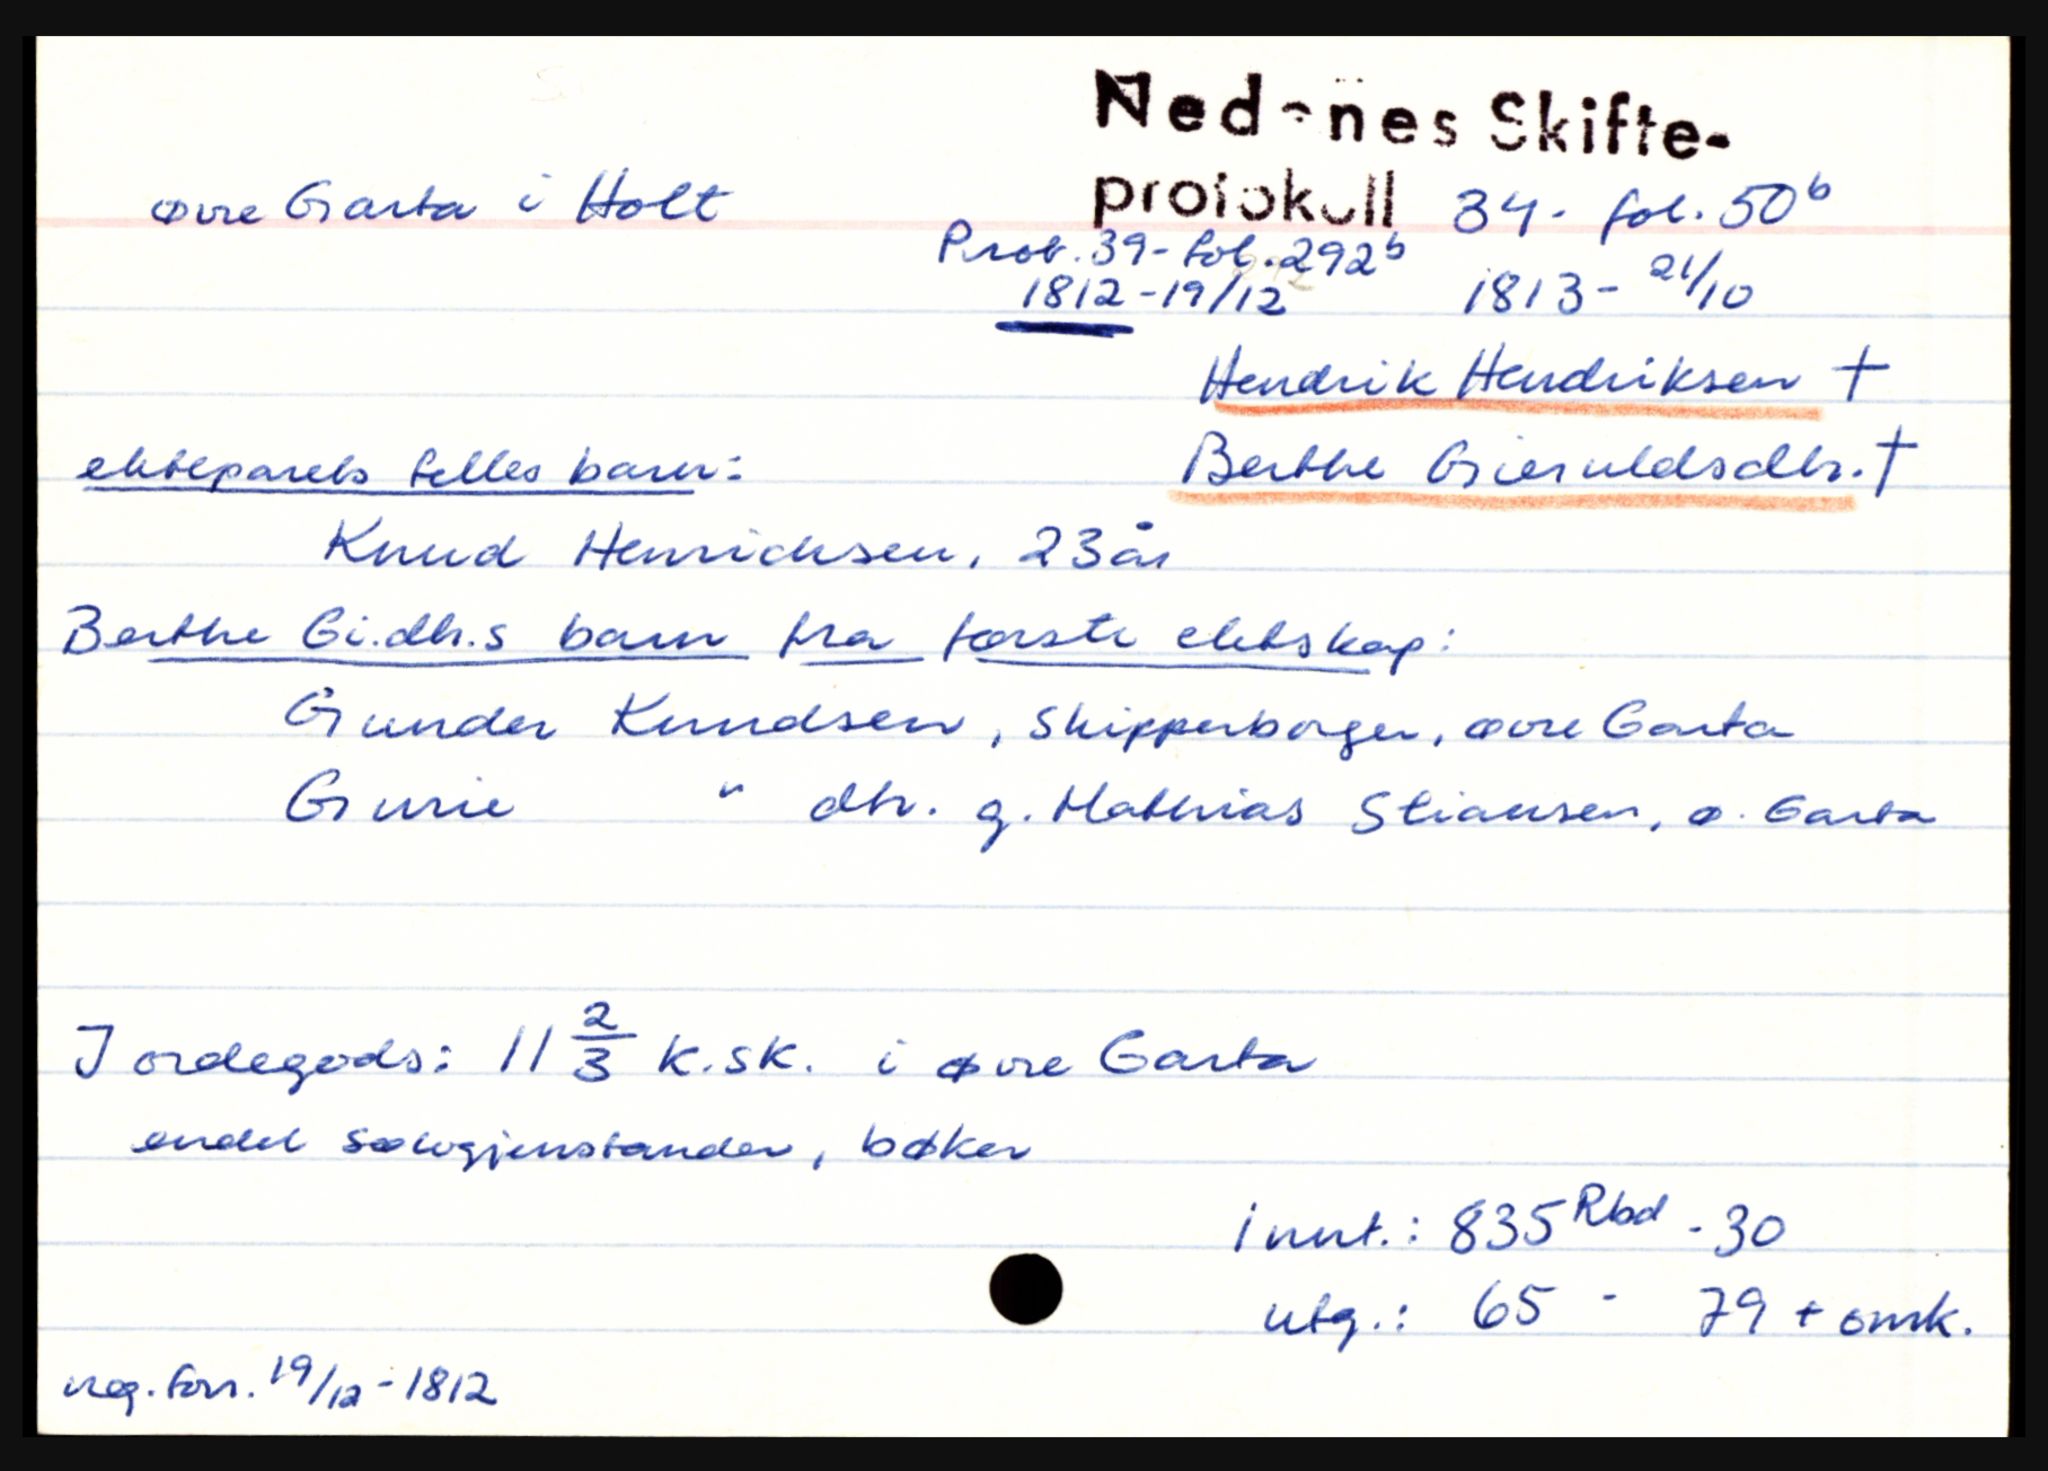 Nedenes Skifte-
øvre Garta i Holt protokoll 34 - fol. 50b
Prot. 39 - fol. 292b
1812 - 19/12 1813 - 21/10
Hendrik Hendriksen †
ekteparets felles barn: Berthe Gieruldsdtr. †
Knud Henrichsen, 23 år
Berthe Gi.dtr.s barn fra første ektskap:
Gunder Knudsen, Skipperborger, øvre Garta
Gurie " dtr. g. Mathias Stiansen, ø. Garta
Jordegods: 11 2/3 k.sk. i øvre Garta
endel sølvgjenstander, bøker
innt.: 835 Rbd - 30
utg.: 65 - 79 + omk.
reg. forr. 19/12 - 1812